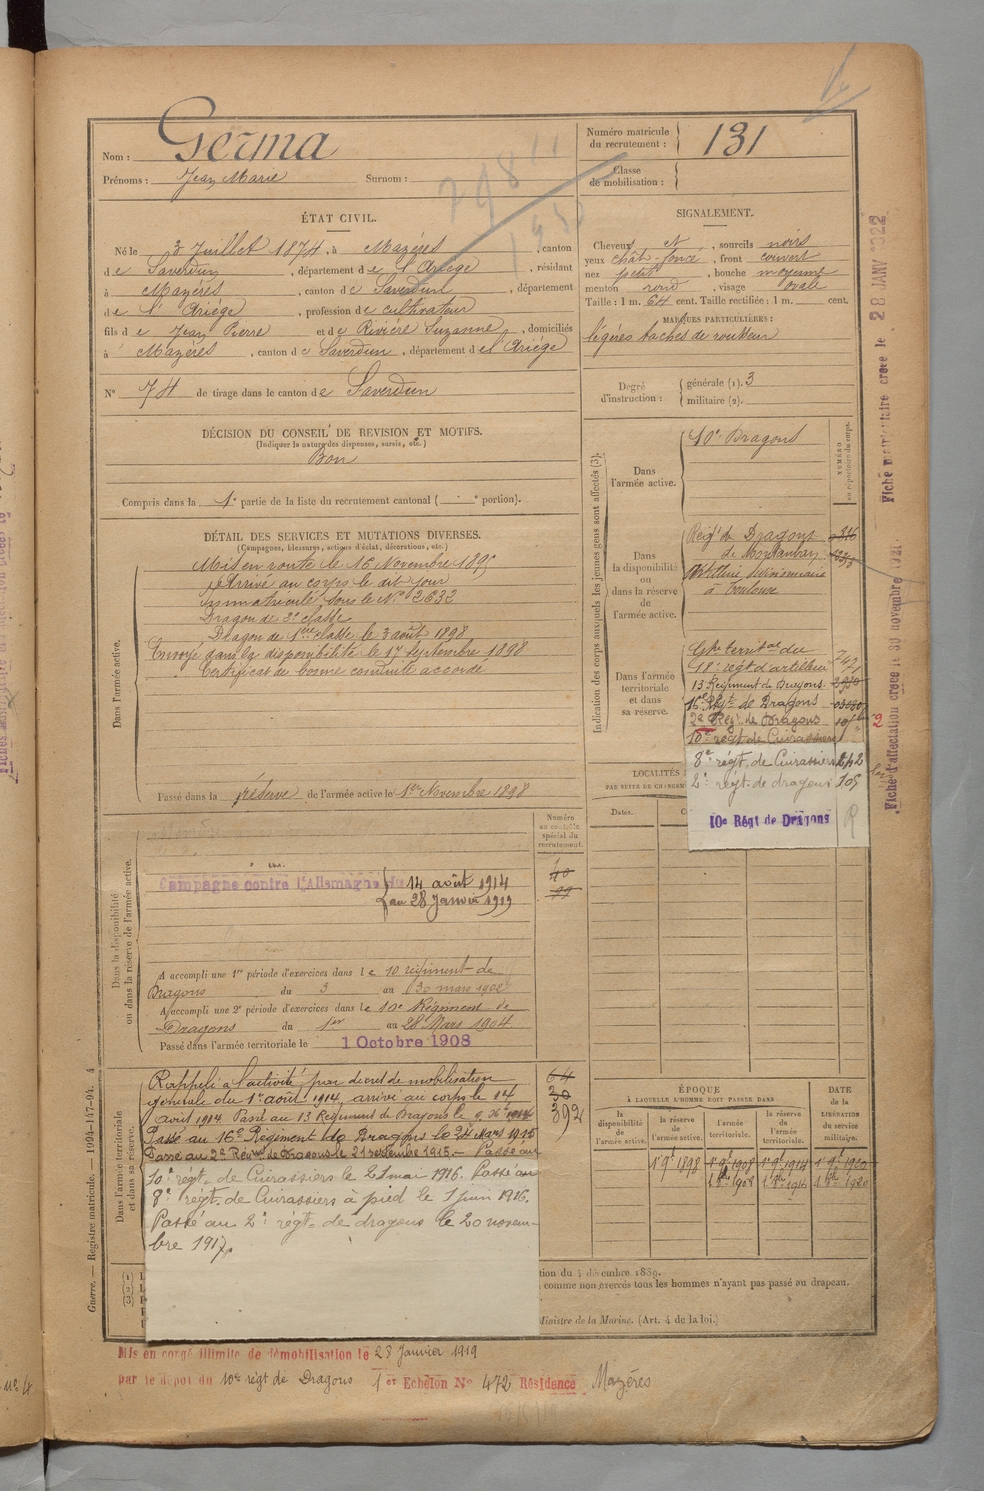 Nom : Germa
Prénoms : Jean Marie Surnom :
Numéro matricule du recrutement : 131
Classe de mobilisation :
ÉTAT CIVIL.
Né le 3 Juillet 1874, à Mazères, canton
de Saverdun, département de l'Ariège, résidant
à Mazères, canton de Saverdun, département
de l'Ariège, profession de cultivateur
fils de Jean Pierre et de Rivière Suzanne, domiciliés
à Mazères, canton de Saverdun, département de l'Ariège
N° 74 de tirage dans le canton de Saverdun
SIGNALEMENT.
Cheveux et, sourcils noirs
yeux chat-foncé, front couvert
nez petit, bouche moyenne
menton rond, visage ovale
Taille : 1 m. 64 cent. Taille rectifiée : 1 m. cent.
MARQUES PARTICULIÈRES :
légères taches de rousseur
Degré d'instruction : générale (1). 3
militaire (2).
DÉCISION DU CONSEIL DE REVISION ET MOTIFS.
(Indiquer la nature des dispenses, sursis, etc.)
Bon
Compris dans la 1e partie de la liste du recrutement cantonal ( e portion).
DÉTAIL DES SERVICES ET MUTATIONS DIVERSES.
(Campagnes, blessures, actions d'éclat, décorations, etc.)
Dans l'armée active.
Mis en route le 16 Novembre 1895
Arrivé au corps le dit jour
immatriculé sous le N° 2632
Dragon de 2e classe
Dragon de 1ère classe le 3 août 1898
Envoyé dans la disponibilité le 17 Septembre 1898
Certificat de bonne conduite accordé
Passé dans la réserve de l'armée active le 1er Novembre 1898
Dans la disponibilité ou dans la réserve de l'armée active.
Numéro au contrôle spécial du recrutement.
40
99
Campagne contre l'Allemagne du 14 août 1914
au 28 Janvier 1919
A accompli une 1re période d'exercices dans le 10 régiment de
Dragons du 3 au 30 mars 1902
A accompli une 2e période d'exercices dans le 10e Régiment de
Dragons du 1er au 28 Mars 1904
Passé dans l'armée territoriale le 1 Octobre 1908
Dans l'armée territoriale et dans sa réserve.
64
30
392
Rappelé à l'activité par decret de mobilisation
générale du 1er août 1914, arrivé au corps le 14
août 1914. Passé au 13 Régiment de Dragons le 9 Xbre 1914
Passé au 16e Régiment de Dragons le 24 Mars 1915
Passé au 2e Régiment de Dragons le 21 septembre 1915. - Passé au
10e régt. de Cuirassiers le 21 mai 1916. Passé au
8e régt. de Cuirassiers à pied le 1 juin 1916.
Passé au 2e régt. de dragons le 20 novem-
bre 1917.
Indication des corps auxquels les jeunes gens sont affectés (3).
NUMÉRO au répertoire du corps.
Dans l'armée active.
10e Dragons
Dans la disponibilité ou dans la réserve de l'armée active.
Régt de Dragons 816
de Montauban
Artillerie divisionnaire
à Toulouse
Dans l'armée territoriale et dans sa réserve.
Gpe territal du
18e régt d'artillerie 742
13 Régiment de Dragons
16e Régt de Dragons
2e Régt de Dragons
10e régt de Cuirassiers
8e régt. de Cuirassiers 242
2e régt. de dragons 105
10e Régt de Dragons
LOCALITÉS
PAR SUITE DE CHANGEM
Dates.
ÉPOQUE
À LAQUELLE L'HOMME DOIT PASSER DANS
la disponibilité de l'armée active.
la réserve de l'armée active.
l'armée territoriale.
la réserve de l'armée territoriale.
DATE de la LIBÉRATION du service militaire.
1er 9e 1898 1er 9e 1908 1er 9e 1914 1er 9e 1920
1er 8bre 1908 1er 8bre 1914 1er 8bre 1920
tion du 4 décembre 1889.
comme non exercés tous les hommes n'ayant pas passé au drapeau.
Ministre de la Marine. (Art. 4 de la loi.)
Mis en congé illimité de démobilisation le 23 Janvier 1919
par le dépôt du 10e régt de Dragons 1er Echelon N° 472 Résidence Mazères
Guerre. — Registre matricule. — 1094-147-94. 4
Fiche matriculaire créée le 28 JANV 1922
Fiche d'affectation créée le 30 novembre 1921